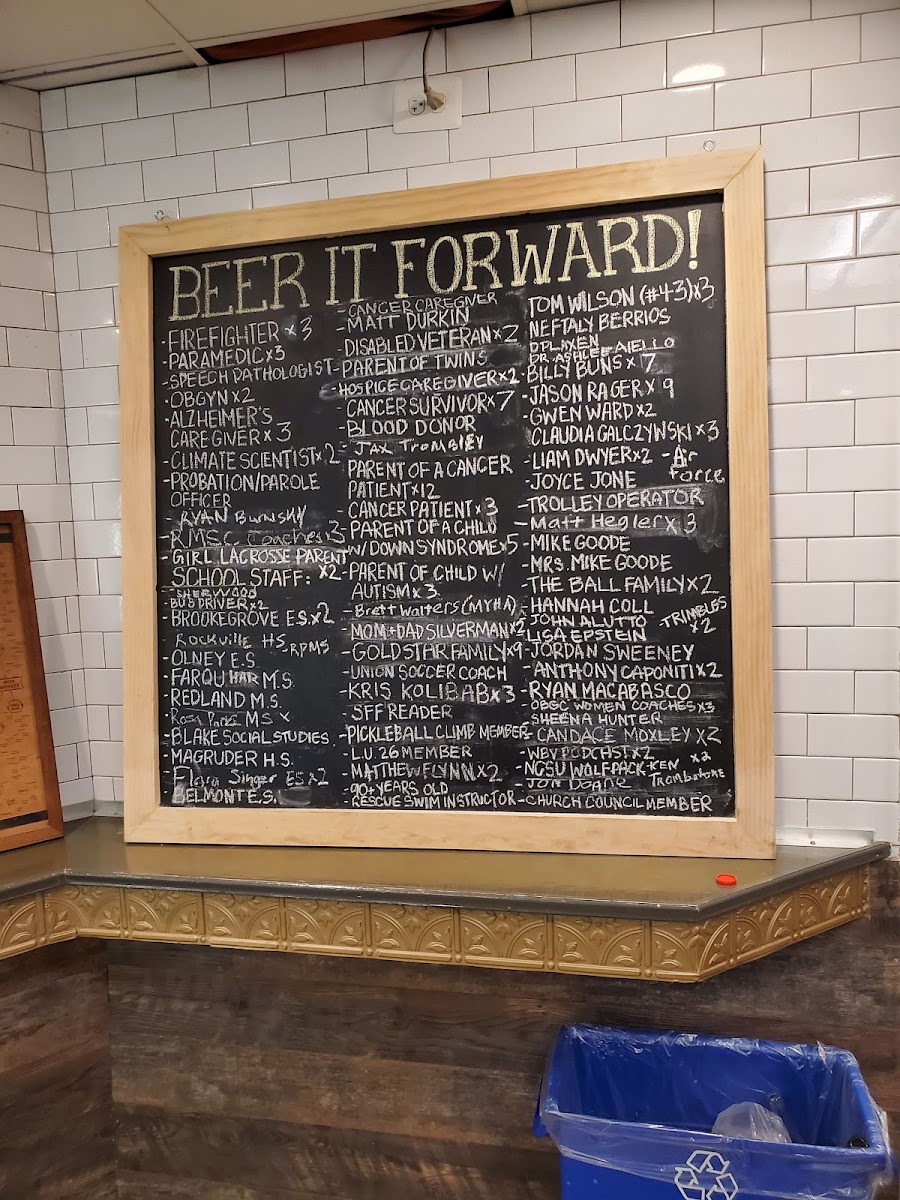 BEER IT FORWARD!
-FIREFIGHTER x3
-PARAMEDIC x3
-SPEECH PATHOLOGIST
-OBGYN x2
-ALZHEIMER'S
CARE GIVER x3
-CLIMATE SCIENTIST x2
-PROBATION/PAROLE
OFFICER
-RYAN Burnsky
-RMSC Coaches x3
-GIRL LACROSSE PARENT
x2
SCHOOL STAFF:
-SHERWOOD
-BUS DRIVER x2
-BROOKEGROVE E.S. x2
Rockville HS, RPMS
-OLNEY E.S.
-FARQUHAR M.S.
-REDLAND M.S.
-Rosa Parks MS x
-BLAKE SOCIAL STUDIES
-MAGRUDER H.S.
-Flora Singer ES x2
BELMONT E.S.
-CANCER CAREGIVER
-MATT DURKIN
-DISABLED VETERAN x2
-PARENT OF TWINS
-HOSPICE CAREGIVER x2
CANCER SURVIVOR x7
-BLOOD DONOR
-Jax Trombley
-PARENT OF A CANCER
PATIENT x12
CANCER PATIENT x3
-PARENT OF A CHILD
W/DOWN SYNDROME x5
-PARENT OF CHILD W/
AUTISM x3
-Brett Walters (MYHA)
-MOM + DAD SILVERMAN x2
-GOLD STAR FAMILY x9
UNION SOCCER COACH
-KRIS KOLIBAB x3
-SFF READER
-PICKLEBALL CLIMB MEMBER
-LJ 26 MEMBER
-MATTHEW FLYNN x2
-90+ YEARS OLD
-RESCUE SWIM INSTRUCTOR
TOM WILSON (#43) x3
NEFTALY BERRIOS
DR. ASHLEE AIELLO
-BILLY BUNS x7
-JASON RAGER x9
-GWEN WARD x2
CLAUDIA GALCZYNSKI x3
-LIAM DWYER x2 -Air
Force
-JOYCE JONE
-TROLLEY OPERATOR
-Matt Hegler x3
-MIKE GOODE
-MRS. MIKE GOODE
-THE BALL FAMILY x2
-HANNAH COLL
JOHN ALUTTO
-TRIMBLES
x2
LISA EPSTEIN
-JORDAN SWEENEY
-ANTHONY CAPONITI x2
-RYAN MACABASCO
OBGC WOMEN COACHES x3
-SHEENA HUNTER
-CANDACE MOXLEY x2
-WBV PODCHST x2
-NCSU WOLFPACK-KEN x2
-JON DOANE Trombotone
-CHURCH COUNCIL MEMBER